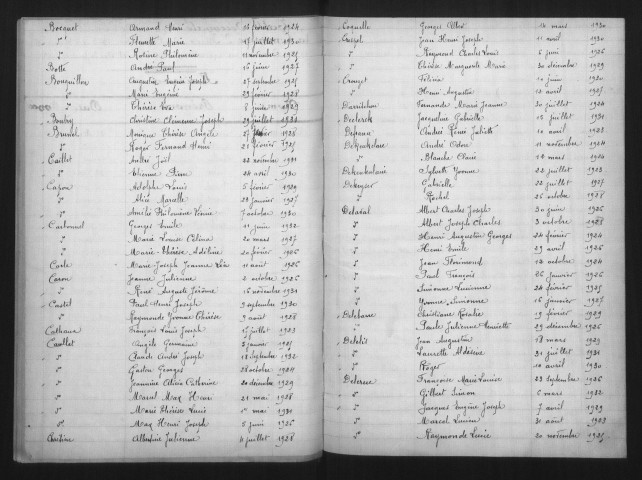 Bocquet Armand Henri 16 février 1924
do Ginette Marie 17 juillet 1930
do Rosine Philomène novembre 1925
Botte André Paul 16 février 1927
Bouquillon Augustin Eugène Joseph 27 septembre 1925
do Marie Eugénie 29 février 1928
do Thérèse Eva 8 juin 1929
Boubry Christian Clémence Joseph 29 juillet 1932
Brunel Monique Thérèse Angèle 27 février 1928
do Roger Fernand Henri 21 février 1925
Caillet André Joël 22 novembre 1931
do Etienne Pierre 24 avril 1930
Capon Adolphe Louis 5 février 1929
do Alice Marcelle 28 janvier 1927
do Amélie Philomène Léonie 7 octobre 1930
Carbonnel Georges Emile 11 juin 1932
do Marie Louise Célina 20 mars 1927
do Marie-Thérèse Adeline 20 février 1926
Carle Marie Joseph Jeanne Léa 11 août 1926
Caron Jeanne Julienne 2 octobre 1926
do René Auguste Jérôme 16 novembre 1931
Castel Paul Henri Joseph 3 septembre 1930
do Raymonde Yvonne Thérèse 9 août 1928
Cathaine François Louis Joseph 15 juillet 1923
Caullet Angèle Germaine 2 janvier 1925
do Claude André Joseph 18 septembre 1932
do Gaston Georges 28 octobre 1924
do Jeannine Alice Catherine 20 décembre 1929
do Marcel Max Henri 21 mai 1928
do Marie Thérèse Lucie 1er mai 1931
do Max Henri Joseph 5 juin 1926
Christine Albertine Julienne 4 juillet 1928
Coquelle Georges Albert mars 1930
Crespel Jean Henri Joseph 11 avril 1930
do Raymond Charles Louis 6 juin 1926
do Thérèse Marguerite Marie 30 décembre 1929
Crouzet Félicie 10 juin 1930
do Henri Augustin 12 avril 1925
Darritchon Fernande Marie Jeanne 30 juillet 1924
Declerck Jacqueline Gabrielle 13 juillet 1931
Defrann André René Juliette 10 avril 1928
Dekeukelaire André Odore 11 novembre 1924
do Blanche Claire 17 mars 1924
Dekeukelaire Sylvette Yvonne 22 juillet 1923
Dekeyser Gabrielle 22 juillet 1925
do Rachel 26 octobre 1928
Delaval Albert Charles Joseph 30 juin 1926
do Albert Joseph Charles 3 octobre 1928
do Henri Augustin Georges 24 février 1924
do Henri Emile 29 avril 1926
do Jean Florimond 12 octobre 1924
do Paul François 26 janvier 1926
do Simonne Lucienne 24 février 1925
do Yvonne Simonne 16 janvier 1927
Delebarre Christiane Rosalie 19 février 1929
do Paule Julienne Henriette 29 décembre 1926
Delelis Jean Augustin 17 mars 1929
do Laurette Aldésire 31 juillet 1931
do Roger 10 avril 1931
Delerue Françoise Marie Louise 23 septembre 1926
do Gilbert Simon 6 mars 1932
do Jacques Eugène Joseph 7 avril 1929
do Marcel Lucien 31 août 1923
do Raymonde Lucie 20 novembre 1925